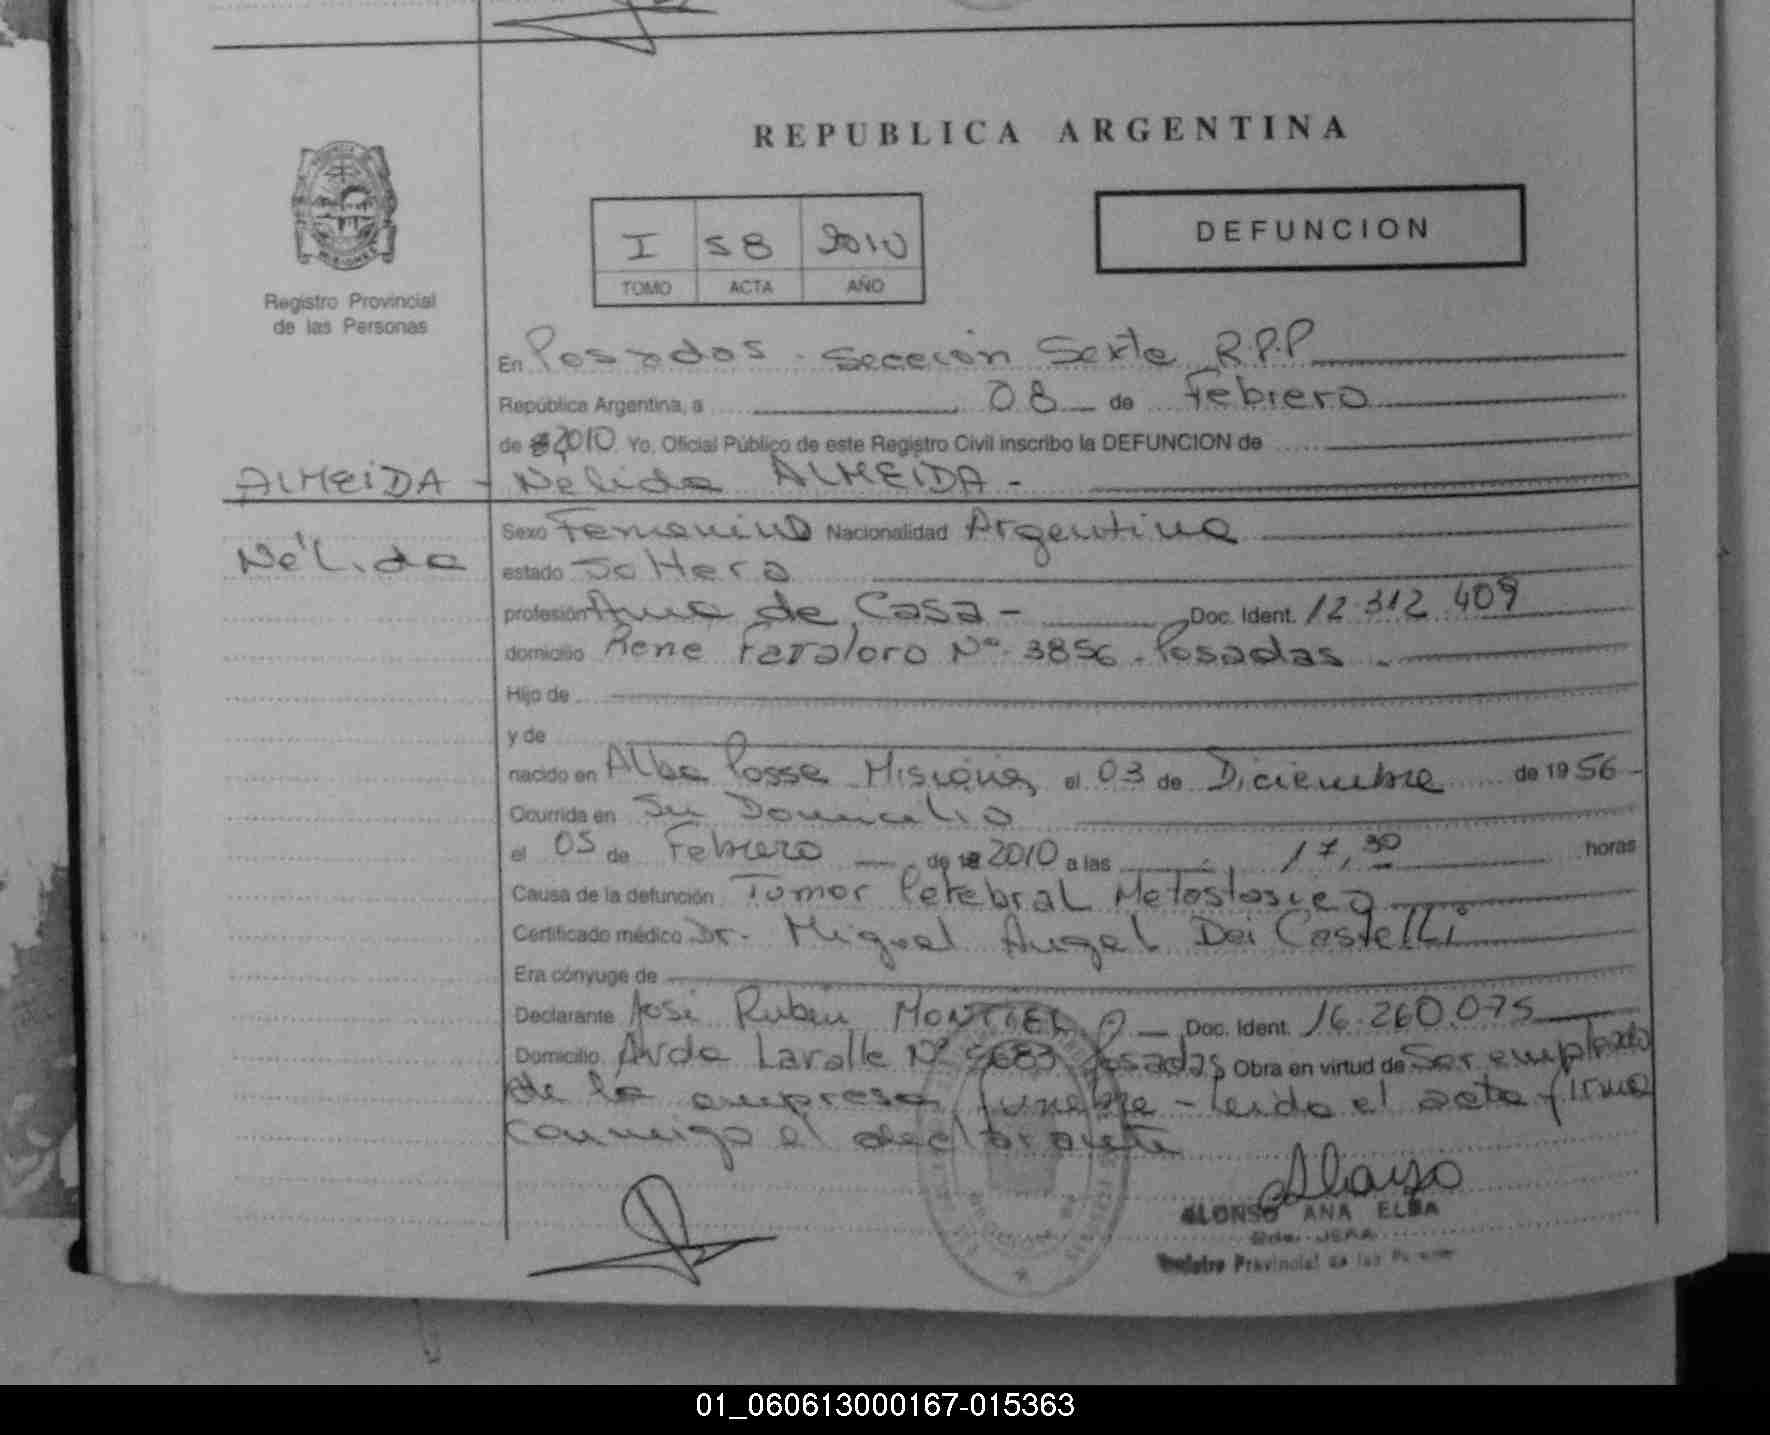 REPUBLICA ARGENTINA
I 58 2010
TOMO ACTA AÑO
DEFUNCION
Registro Provincial
de las Personas
En Posadas - Sección Sexta R.P.P
República Argentina, a 08 de Febrero
de 2010 Yo, Oficial Público de este Registro Civil inscribo la DEFUNCION de
ALMEIDA - Nelida ALMEIDA -
Nélida
Sexo Femenino Nacionalidad Argentina
estado Soltera
profesión Ama de Casa - Doc. Ident. 12.312.409
domicilio Rene Favaloro Nº 3856 - Posadas -
Hijo de
y de
nacido en Alba Posse Misiones el 03 de Diciembre de 1956 -
Ocurrida en Su Domicilio
el 05 de Febrero de 2010 a las 17,30 horas
Causa de la defunción Tumor Cerebral Metastasico
Certificado médico Dr. Miguel Angel Dei Castelli
Era cónyuge de
Declarante José Rubén MONTIEL Doc. Ident. 16.260.075
Domicilio Avda Lavalle Nº 5683 Posadas Obra en virtud de Ser empleado
de la empresa funebre - Leida el acta firma
conmigo el declarante
ALONSO ANA ELBA
Registro Provincial de las
01_060613000167-015363